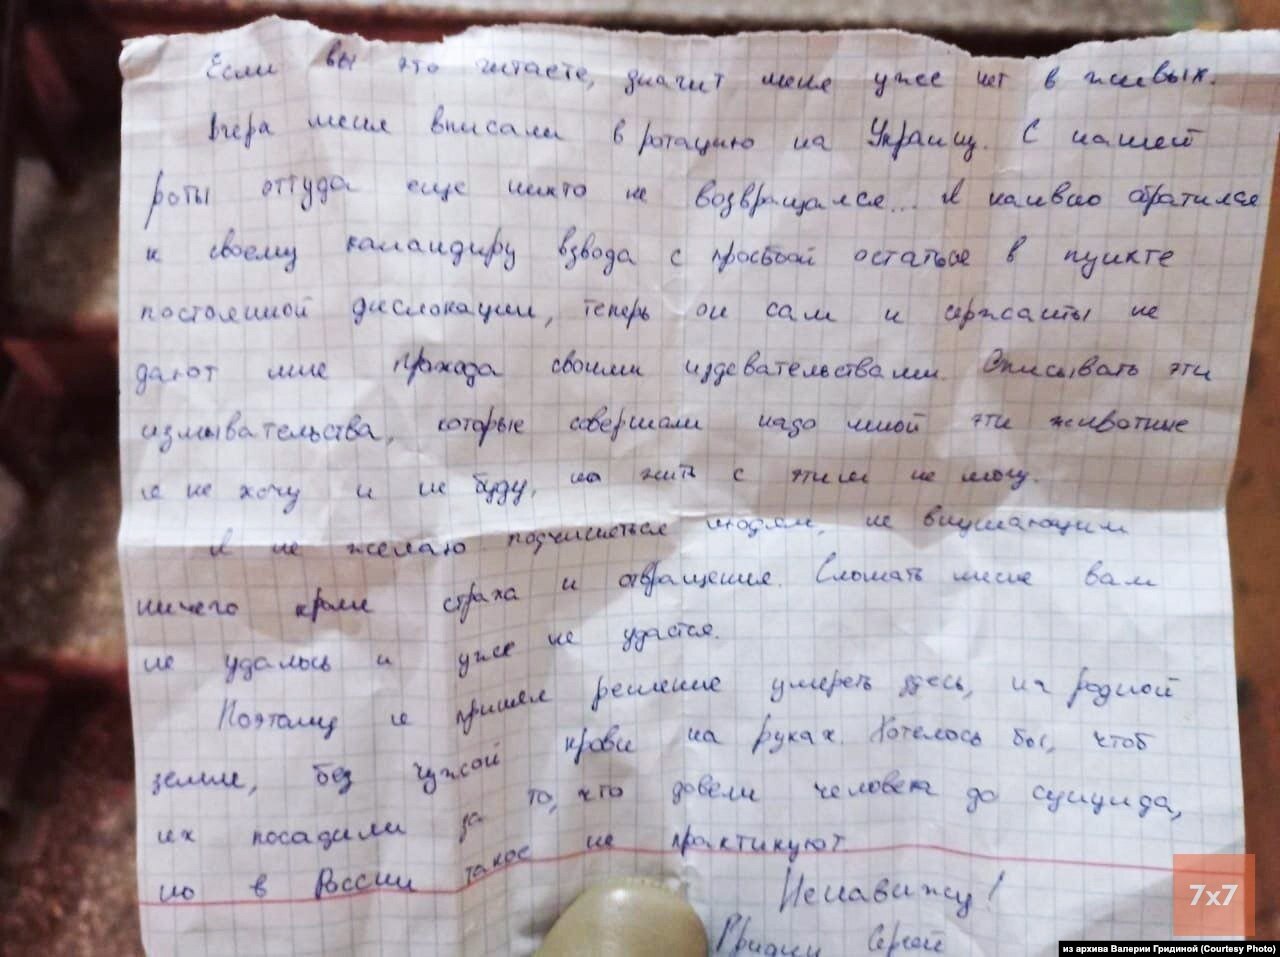 Если вы это читаете, значит меня уже нет в живых.
Вчера меня вписали в ротацию на Украину. С нашей
роты оттуда еще никто не возвращался... Я наивно обратился
к своему командиру взвода с просьбой остаться в пункте
постоянной дислокации, теперь он сам и сержанты не
дают мне прохода своими издевательствами. Описывать эти
измывательства, которые совершали надо мной эти животные
я не хочу и не буду, но жить с этим не могу.
Я не желаю подчиняться людям, не внушающим
ничего кроме страха и отвращения. Сломать меня вам
не удалось и уже не удастся.
Поэтому я пришел решение умереть здесь, на родной
земле, без чужой крови на руках. Хотелось бы, чтоб
их посадили за то, что довели человека до суицида,
но в России такое не практикуют
Ненавижу!
Гридин Сергей
7x7
из архива Валерии Гридиной (Courtesy Photo)